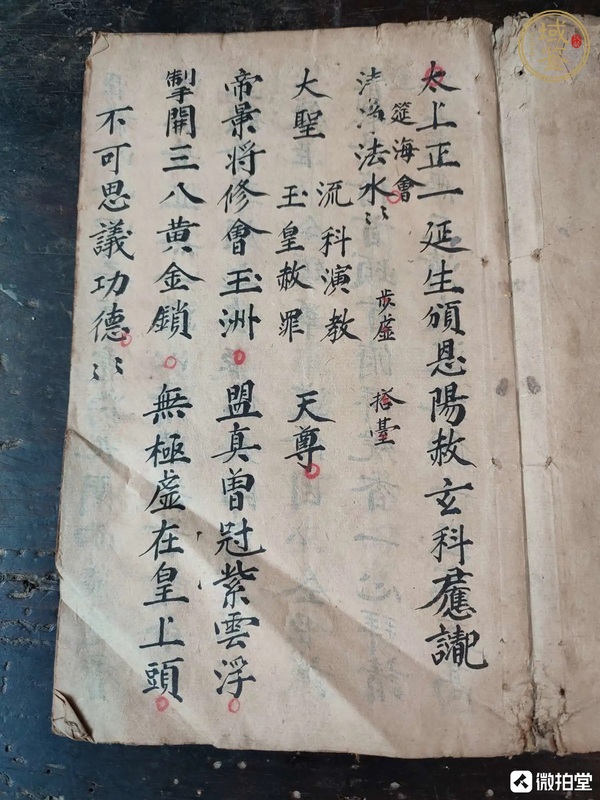 太上正一延生頒恩陽赦玄科
筵海會
清淨法水
步虛
搭臺
大聖
流科演教
玉皇赦罪
天尊
帝景將修會玉洲 盟真曾冠紫雲浮
掣開三八黃金鎖 無極虛在皇上頭
不可思議功德
微拍堂